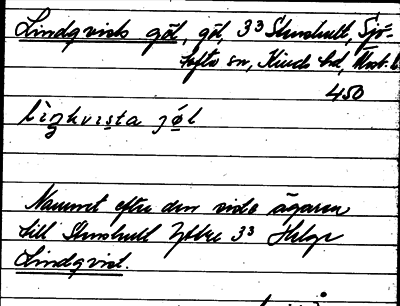 Lindqvists göl, göl, 33 Stenshult, Sjö-
hofta sn, Kinds hd,
450
lìŋkvɩsta jø̀l
Namnet efter den siste ägaren
till Stenshult Yttre 33 Helge
Lindqvist.